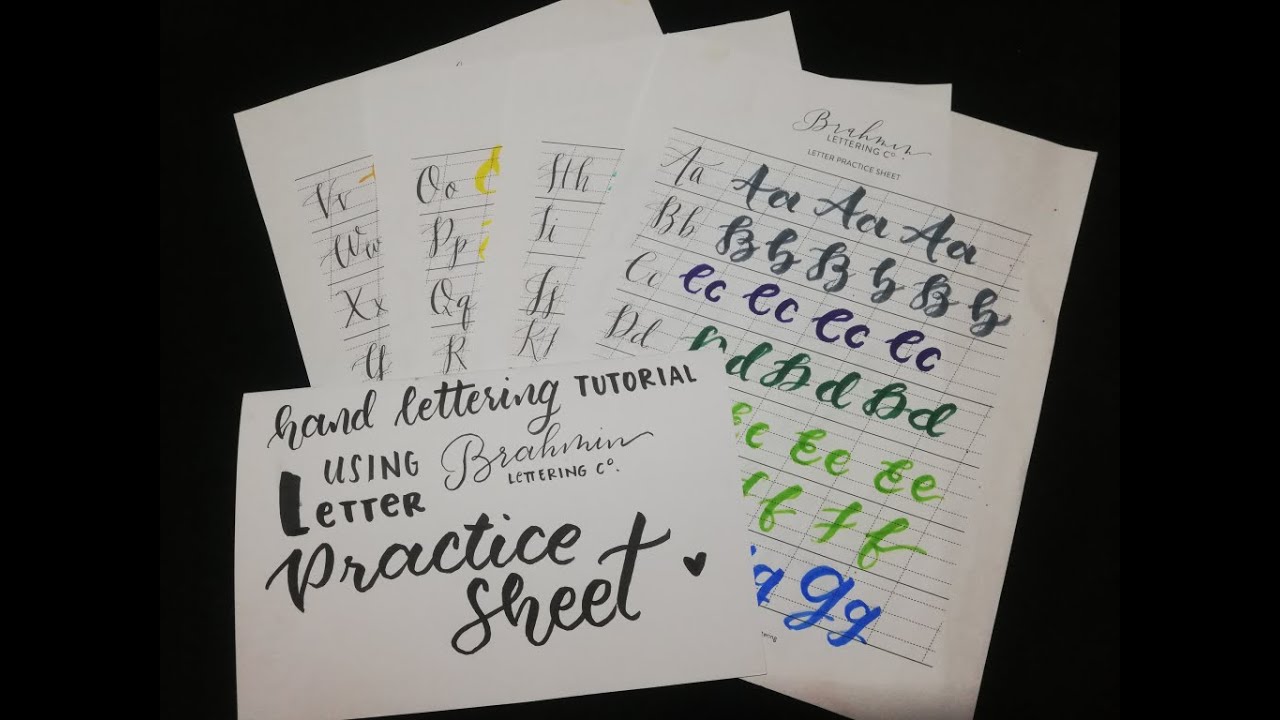 Vv
Ww
Xx
Y
Oo
Pp
Qq
R
Hh
Ii
Jj
K
Brahmin
LETTERING Cº.
LETTER PRACTICE SHEET
Aa Aa Aa Aa
Bb Bb Bb Bb
Cc Cc Cc Cc Cc
Dd d Dd Dd
c Ee Ee
f Ff
g Gg
hand lettering TUTORIAL
USING Brahmin
LETTERING Cº.
LETTER
practice
sheet